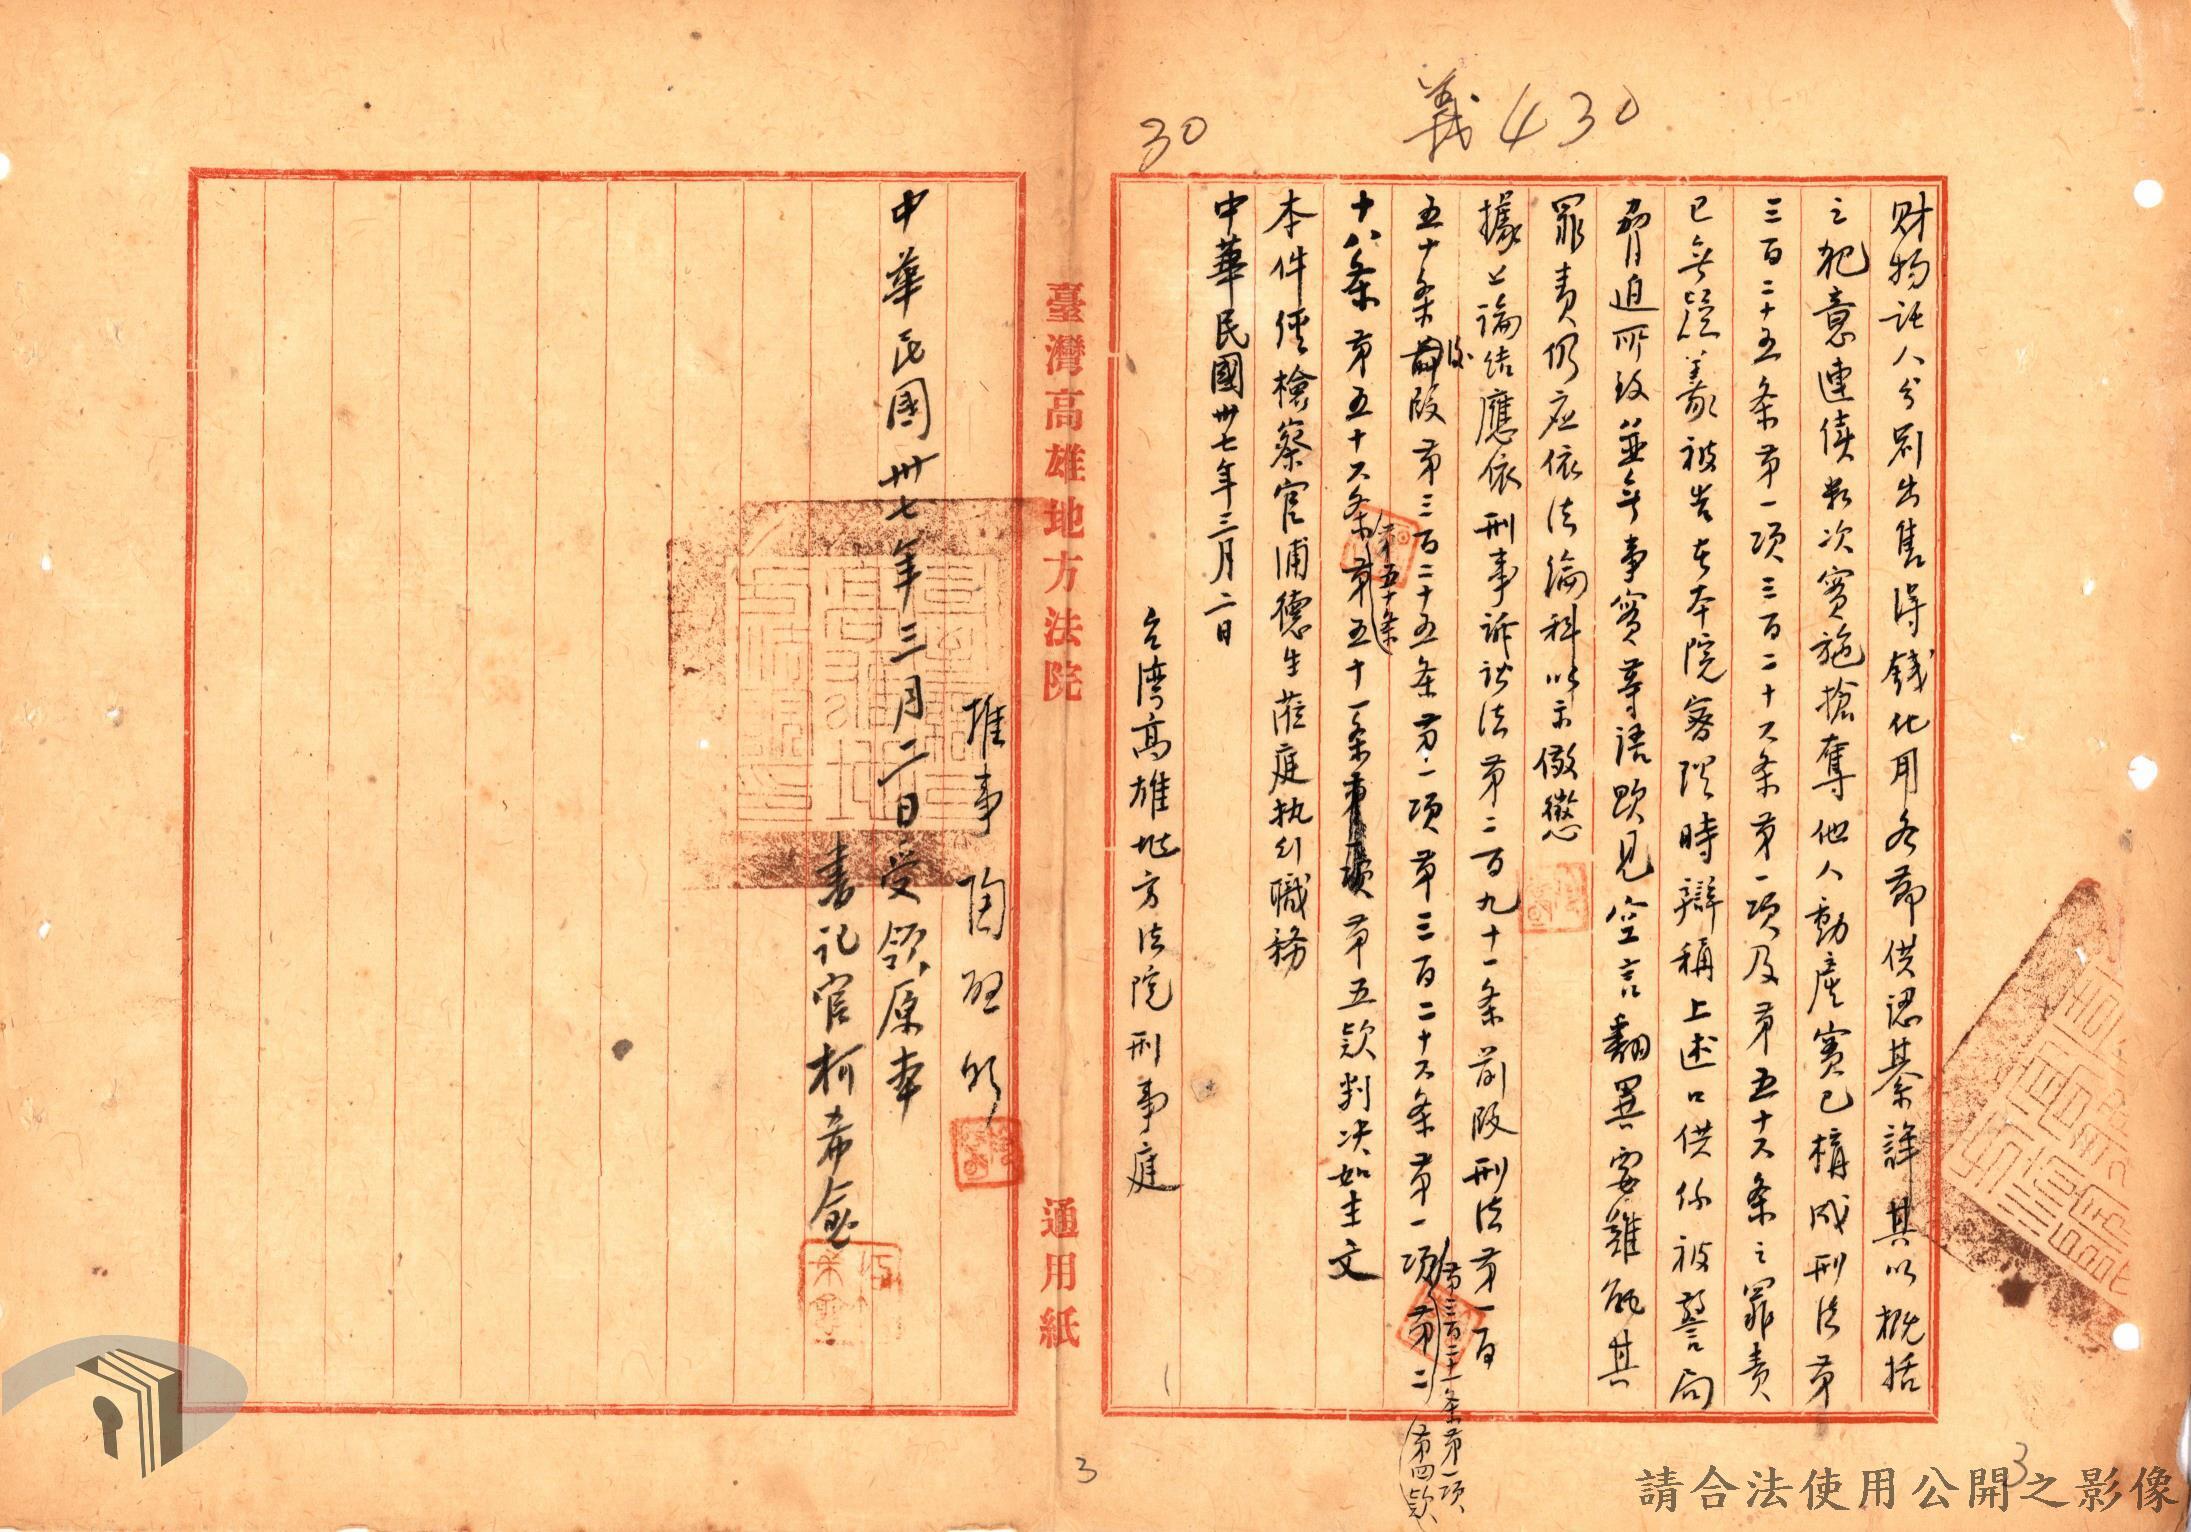 義430
30
財物託人分別出售得錢化用各節供認綦詳其以概括
之犯意連續數次實施搶奪他人動產實已構成刑法第
三百二十五条第一項三百二十六条第一項及第五十六条之罪責
已無疑義被告在本院審理時辯稱上述口供係被警局
脅迫所致並無事實等語顯見空言翻異要難解其
罪責仍应依法論科以示儆懲
據上論結應依刑事訴訟法第二百九十一条前段刑法第一百
五十条後段第三百二十五条第一項第三百二十六条第一項第三百二十一条第一項第四款第二
十八条第五十六条第五十条第五十一条第五款判决如主文
本件經檢察官浦德生蒞庭執行職務
中華民國卅七年三月二日
台湾高雄地方法院刑事庭
臺灣高雄地方法院
通用紙
推事 陶
中華民國卅七年三月二日受領原本
書記官柯希
3
3
請合法使用公開之影像